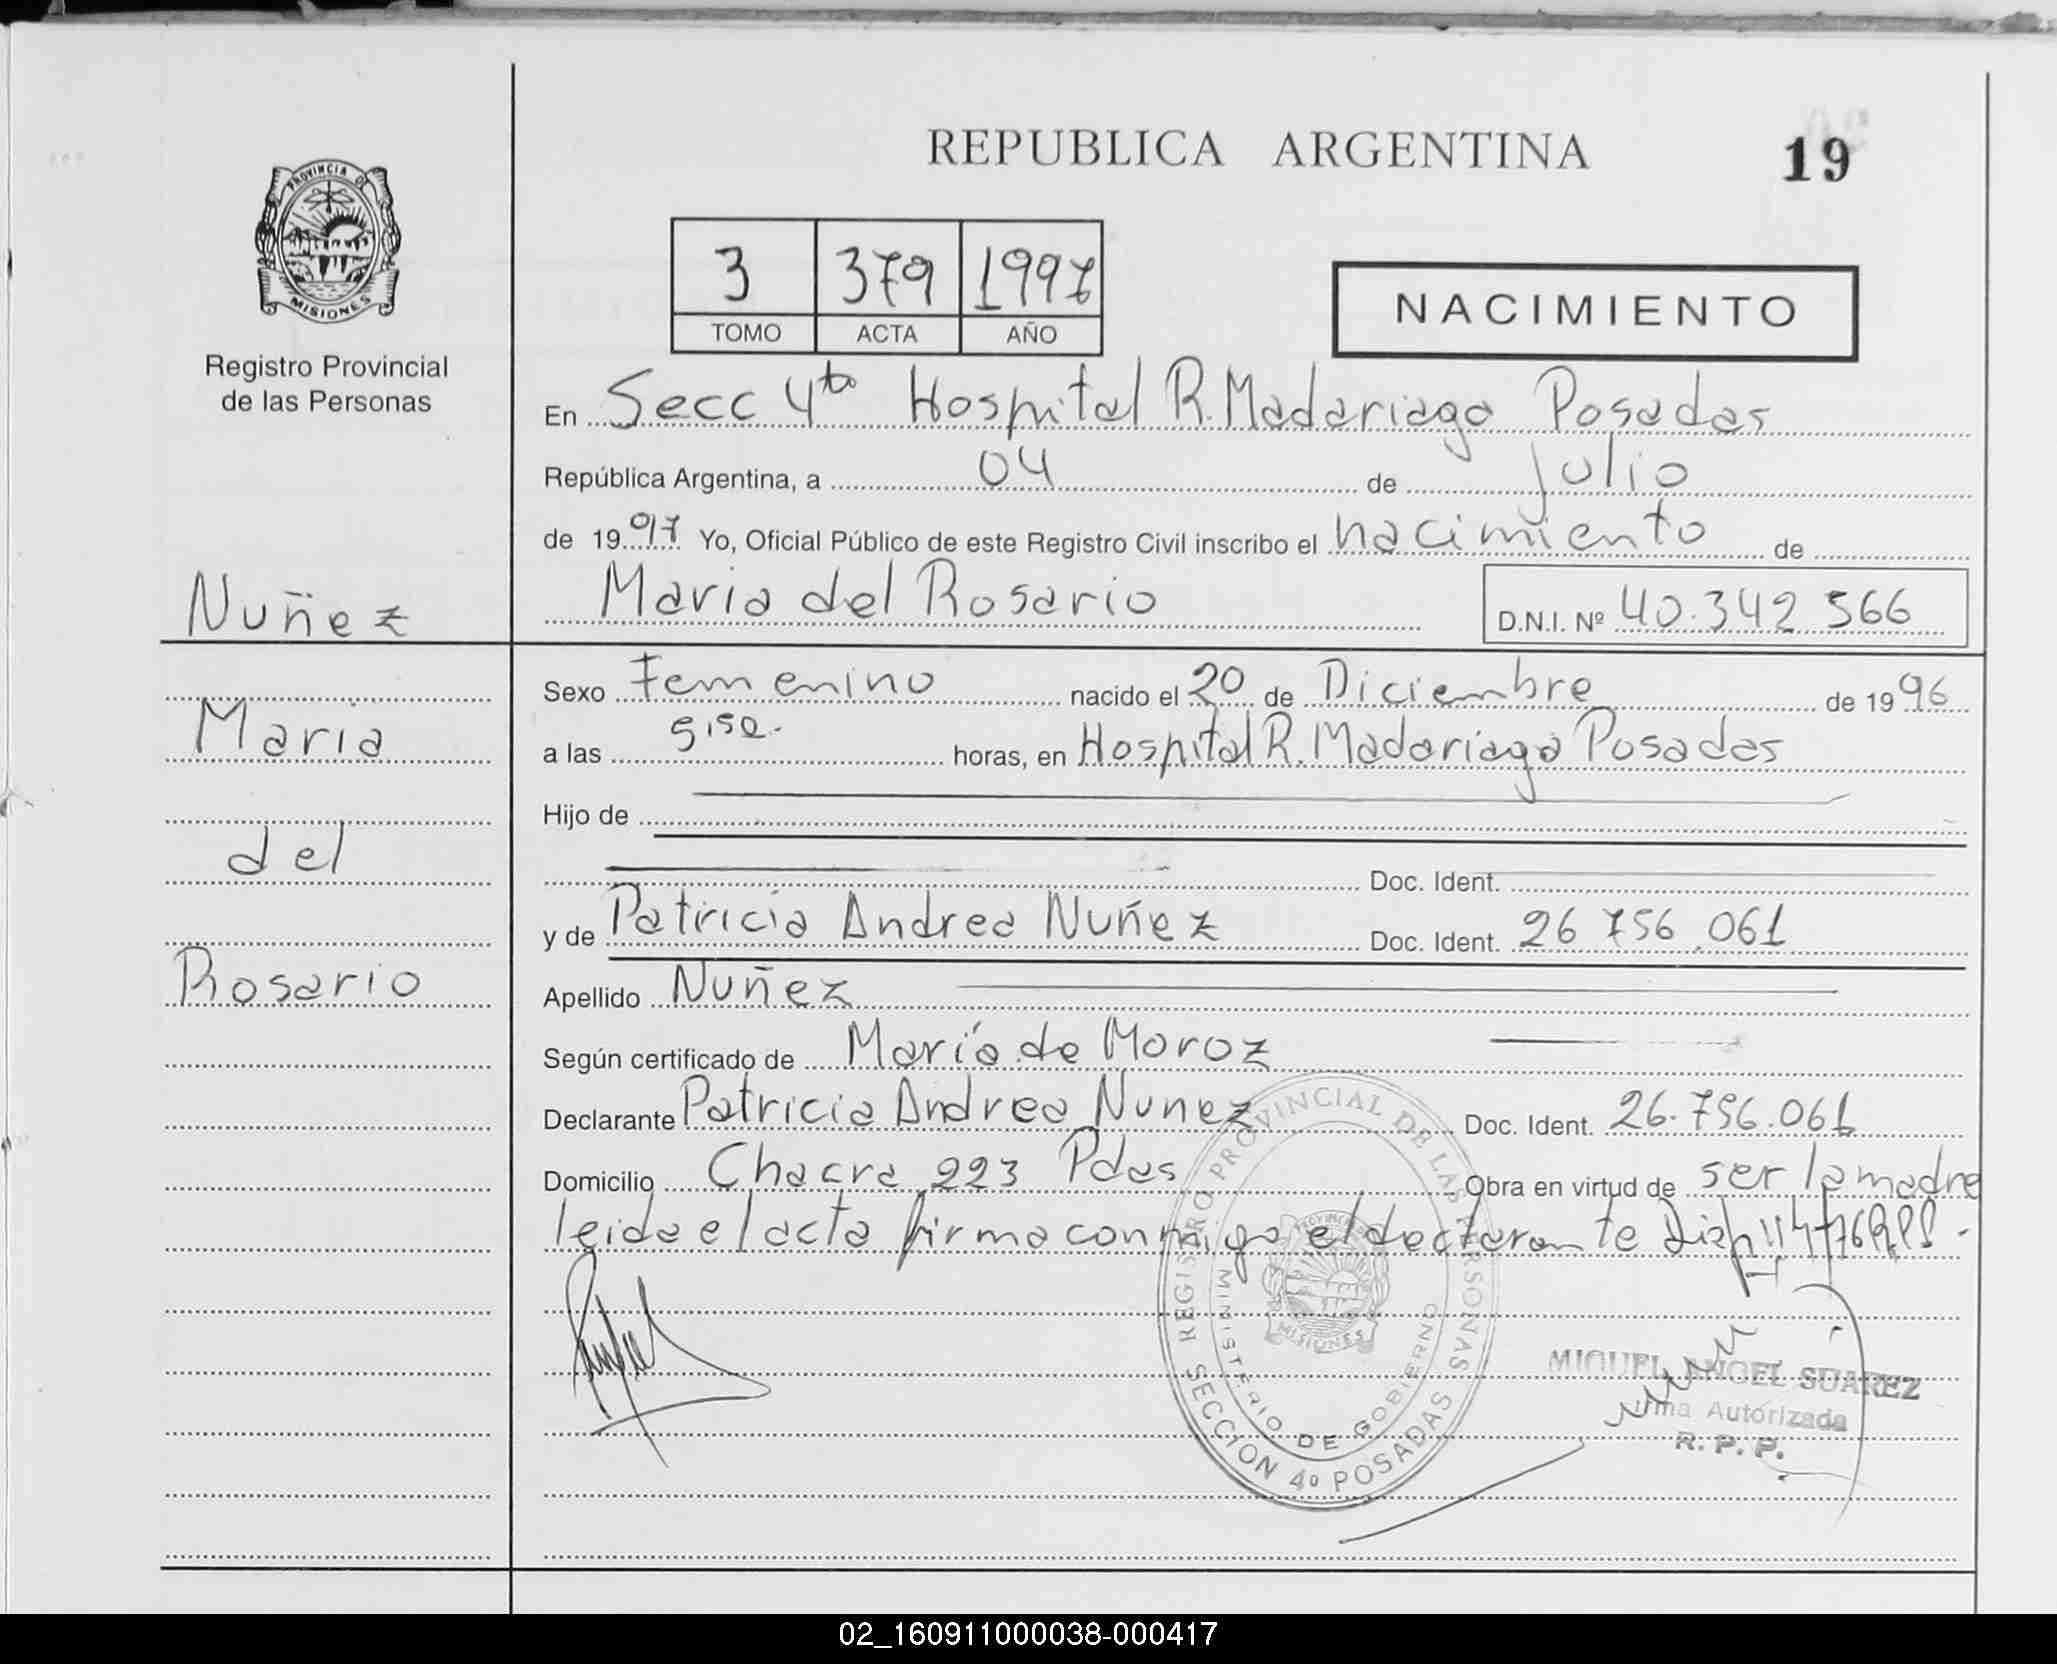 REPUBLICA ARGENTINA
19
PROVINCIA DE
MISIONES
Registro Provincial
de las Personas
3 379 1997
TOMO ACTA AÑO
NACIMIENTO
En Secc 4ta Hospital R. Madariaga Posadas
República Argentina, a 04 de julio
de 1997 Yo, Oficial Público de este Registro Civil inscribo el nacimiento de
Maria del Rosario D.N.I. Nº 40.342 566
Nuñez
Maria
del
Rosario
Sexo Femenino nacido el 20 de Diciembre de 1996
a las horas, en Hospital R. Madariaga Posadas
Hijo de
Doc. Ident.
y de Patricia Andrea Nuñez Doc. Ident. 26 756.061
Apellido Nuñez
Según certificado de María de Moroz
Declarante Patricia Andrea Nunez Doc. Ident. 26.756.061
Domicilio Chacra 223 Pdas Obra en virtud de ser la madre
leida el acta firma conmigo el declarante
REGISTRO PROVINCIAL DE LAS PERSONAS
MINISTERIO DE GOBIERNO
MISIONES
SECCION 4º POSADAS
MIGUEL ANGEL SUAREZ
Firma Autorizada
R. P. P.
02_160911000038-000417